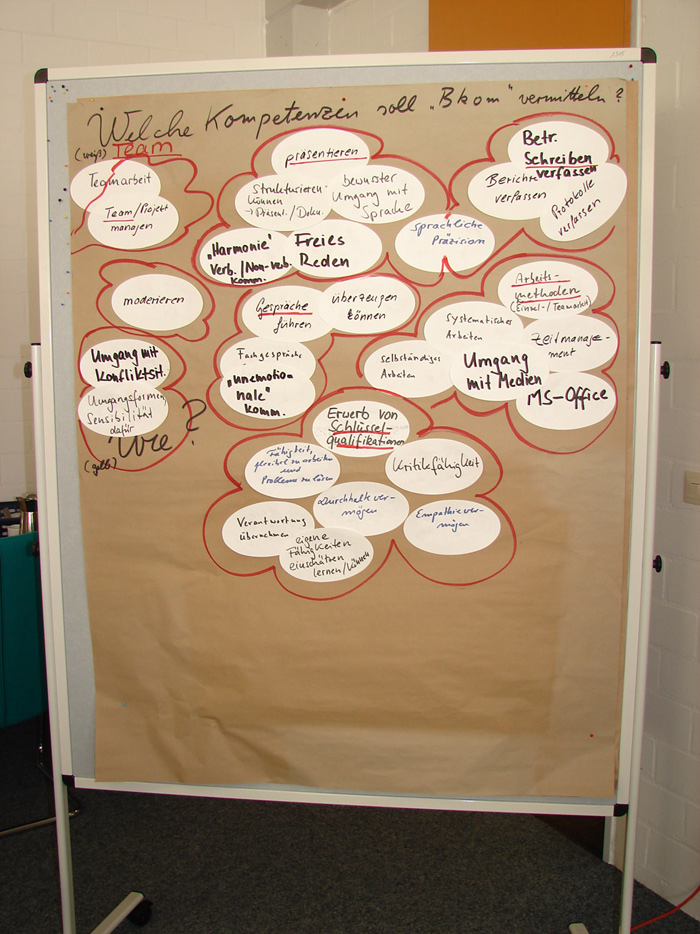 Welche Kompetenzen soll „Bkom“ vermitteln?
(weiß) Team
Teamarbeit
Team/Projekt
managen
präsentieren
Strukturieren
können
→ Präsent./Doku.
bewusster
Umgang mit
Sprache
„Harmonie“
Verb./Non-verb.
Komm.
Freies
Reden
sprachliche
Präzision
Betr.
Schreiben
verfassen
Berichte
verfassen
Protokolle
verfassen
moderieren
Gespräche
führen
überzeugen
können
Fachgespräche
„unemotio-
nale“
Komm.
Arbeits-
methoden
(Einzel-/Teamarbeit)
Systematisches
Arbeiten
Zeitmanage-
ment
selbständiges
Arbeiten
Umgang
mit Medien
MS-Office
Umgang mit
Konfliktsit.
Umgangsformen,
Sensibilität
dafür
Wie?
(gelb)
Erwerb von
Schlüssel-
qualifikationen
Fähigkeit,
flexibel zu arbeiten
und
Probleme zu lösen
Kritikfähigkeit
Durchhaltever-
mögen
Verantwortung
übernehmen
Empathiever-
mögen
eigene
Fähigkeiten
einschätzen
lernen/können